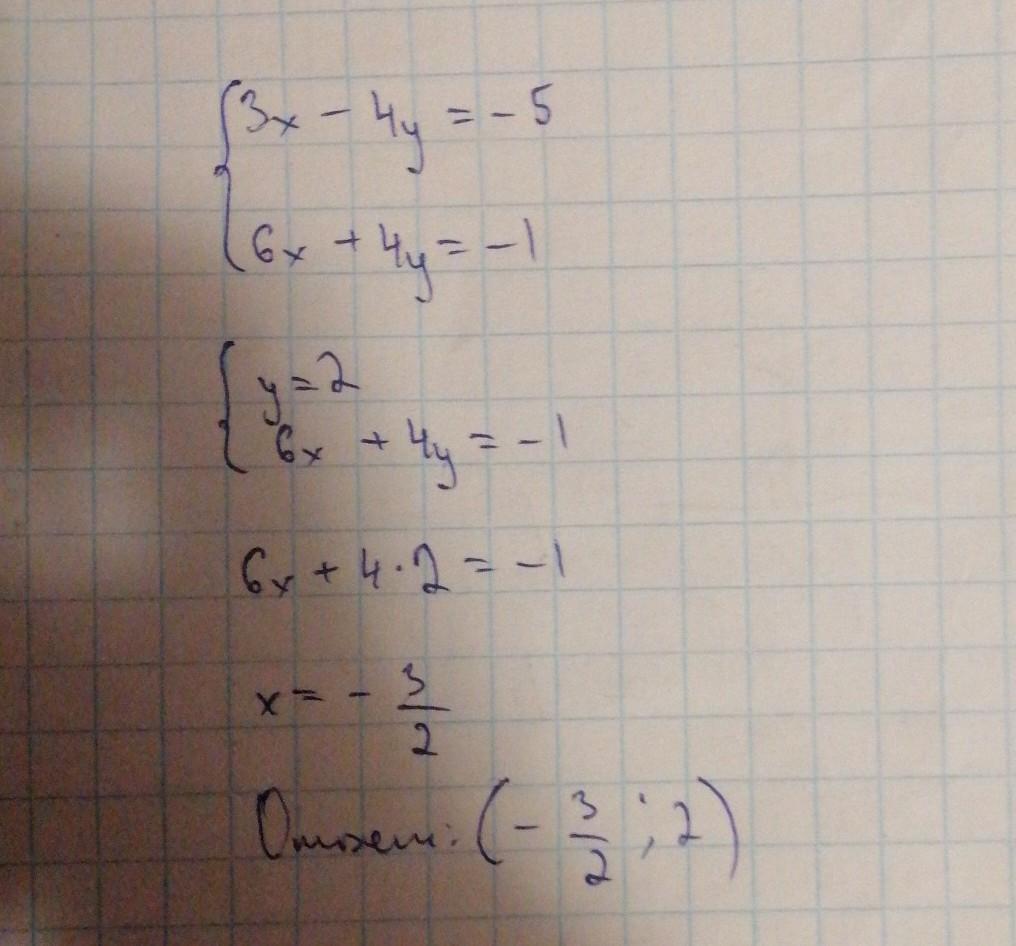 3x - 4y = - 5
6x + 4y = - 1
y = 2
6x + 4y = - 1
6x + 4 · 2 = - 1
x = - 3/2
Ответ: (- 3/2 ; 2)